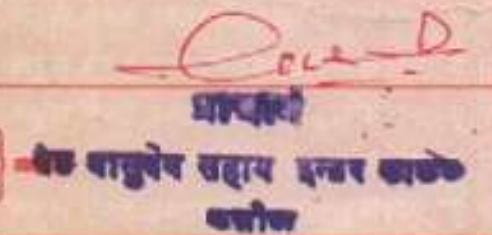 प्राचार्य
सेठ वासुदेव सहाय इन्टर कालेज
कन्नौज